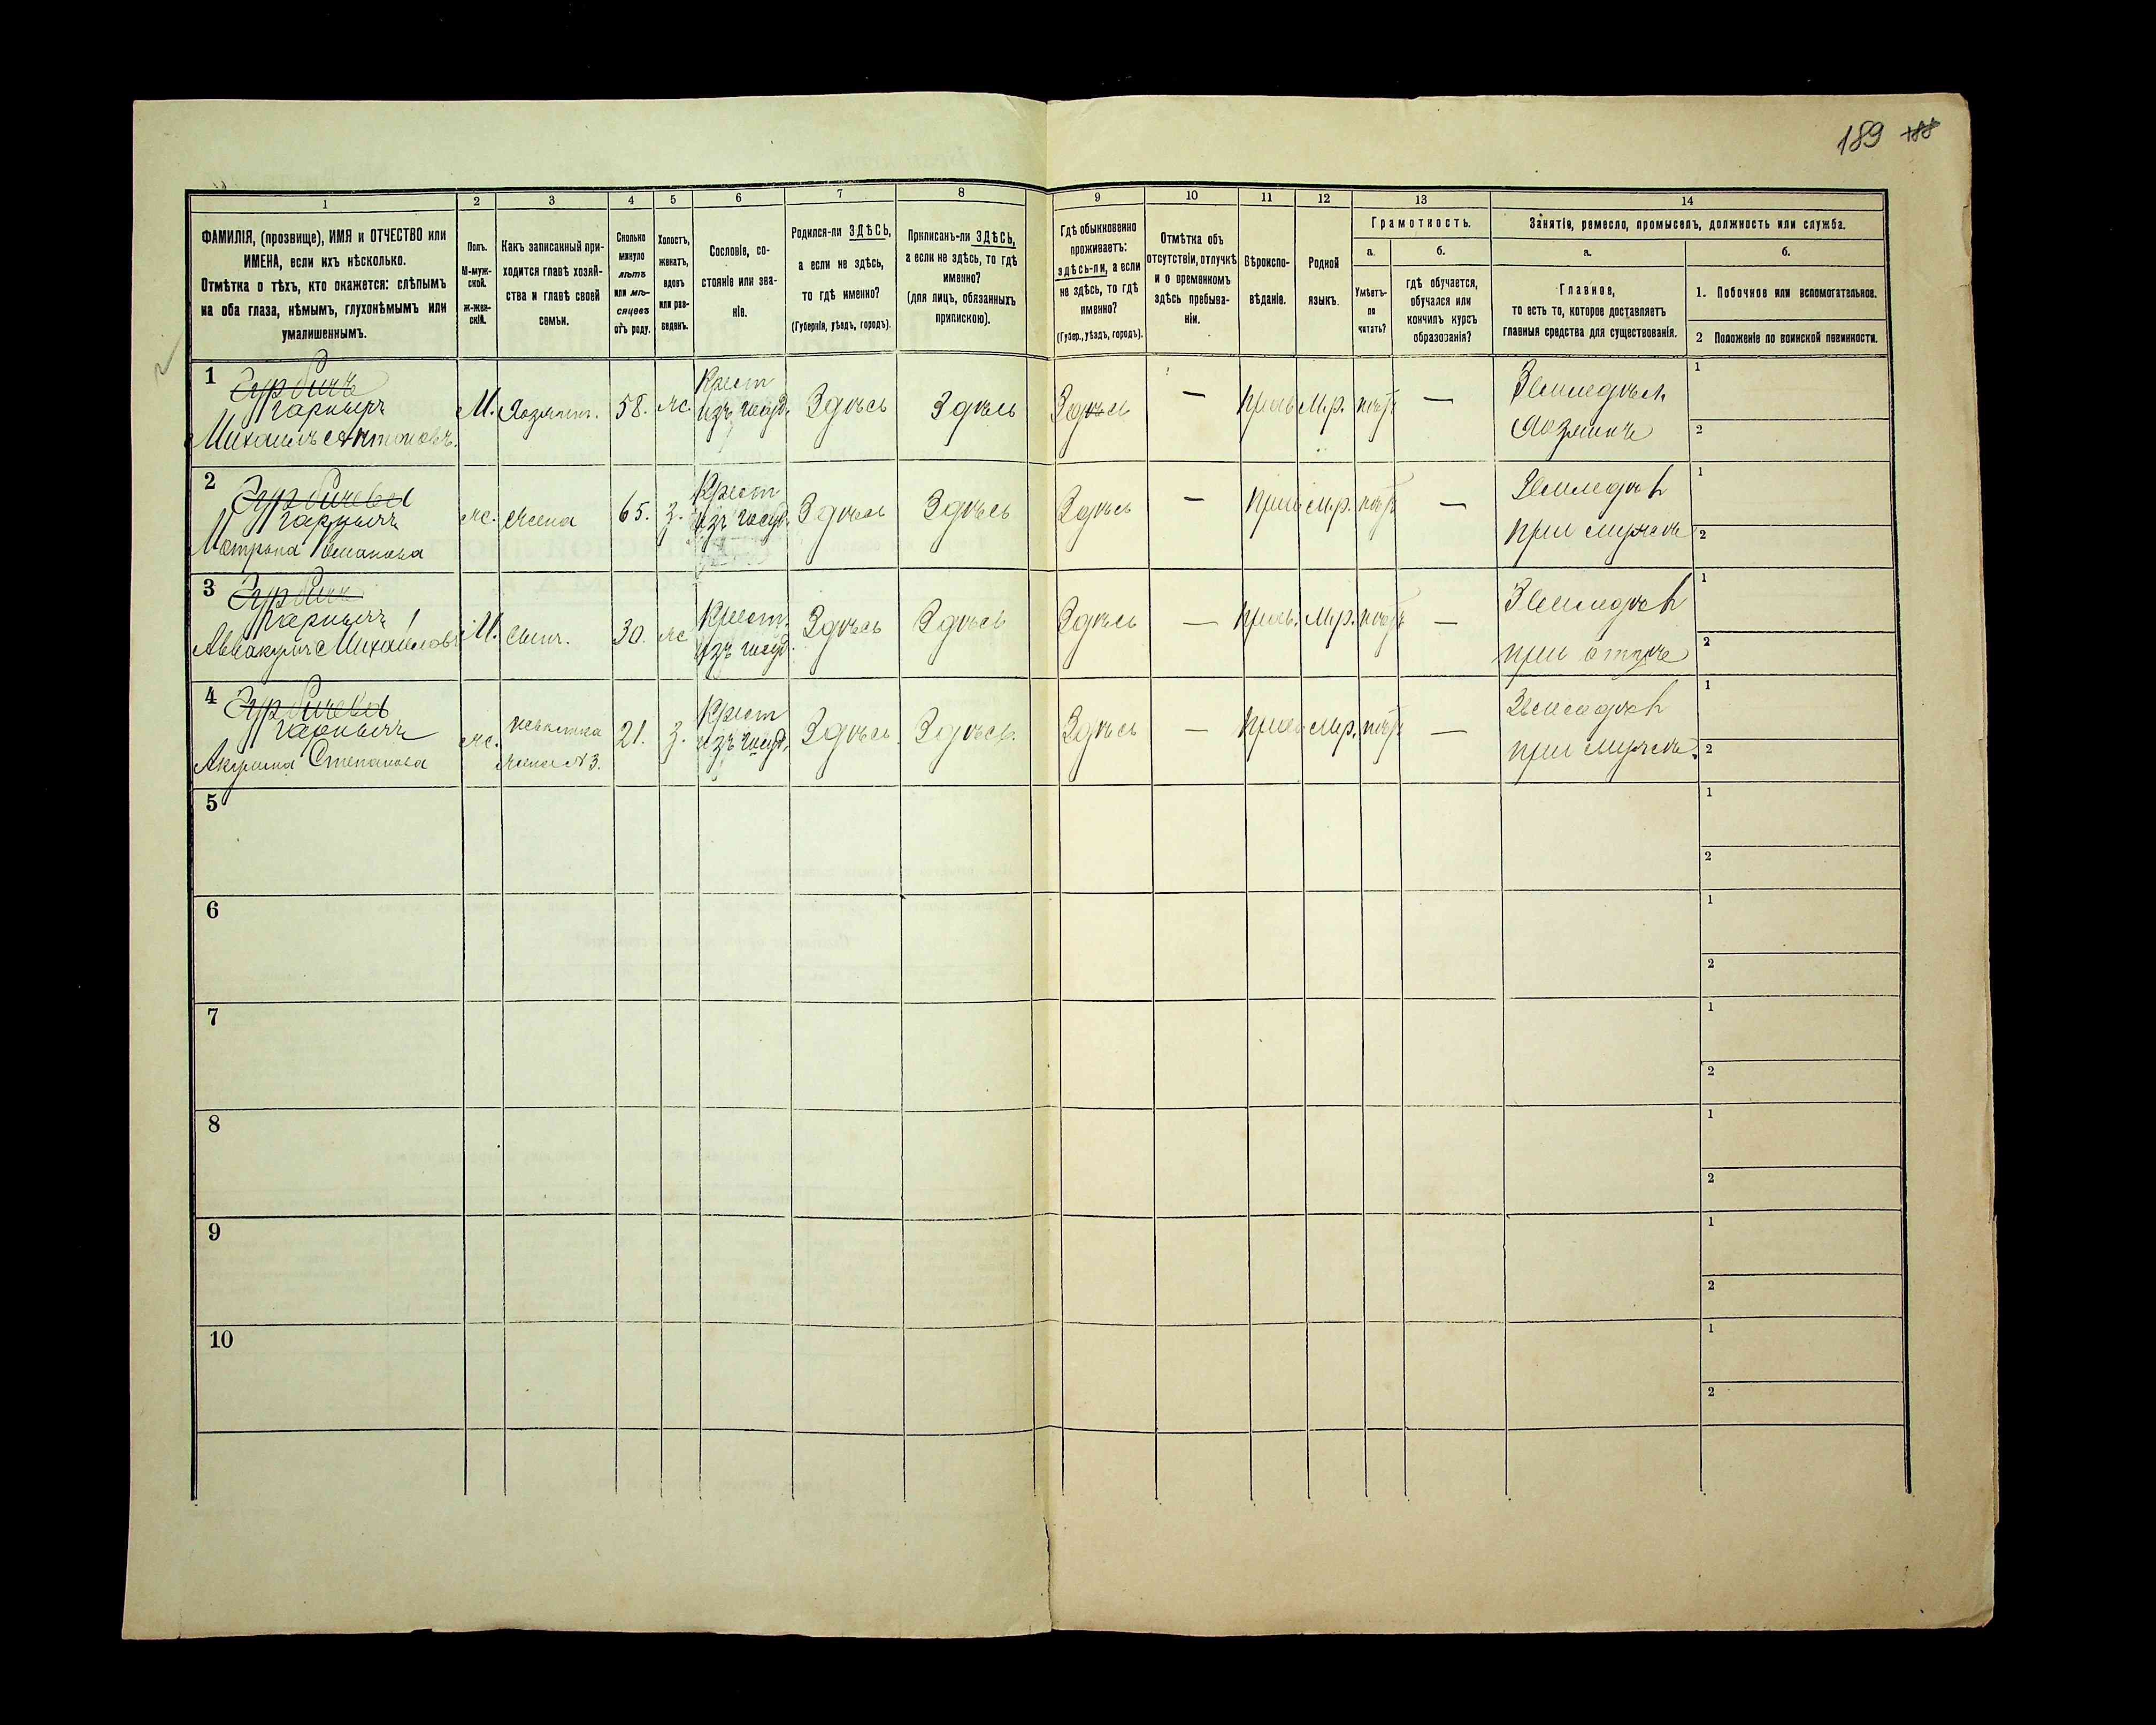 189 188
1 2 3 4 5 6 7 8 9 10 11 12 13 14
ФАМИЛІЯ, (прозвище), ИМЯ и ОТЧЕСТВО или
ИМЕНА, если ихъ нѣсколько.
Отмѣтка о тѣхъ, кто окажется: слѣпымъ
на оба глаза, нѣмымъ, глухонѣмымъ или
умалишеннымъ.
Полъ.
М-муж-
ской.
ж-жен-
скій.
Какъ записанный при-
ходится главѣ хозяй-
ства и главѣ своей
семьи.
Сколько
минуло
лѣтъ
или мѣ-
сяцевъ
отъ роду.
Холостъ,
женатъ,
вдовъ
или раз-
веденъ.
Сословіе, со-
стояніе или зва-
ніе.
Родился-ли ЗДѢСЬ,
а если не здѣсь,
то гдѣ именно?
(Губернія, уѣздъ, городъ).
Приписанъ-ли ЗДѢСЬ,
а если не здѣсь, то гдѣ
именно?
(для лицъ, обязанныхъ
припискою).
Гдѣ обыкновенно
проживаетъ:
здѣсь-ли, а если
не здѣсь, то гдѣ
именно?
(Губер., уѣздъ, городъ).
Отмѣтка объ
отсутствіи, отлучкѣ
и о временномъ
здѣсь пребыва-
ніи.
Вѣроиспо-
вѣданіе.
Родной
языкъ.
Грамотность.
а.
Умѣетъ-
ли
читать?
б.
гдѣ обучается,
обучался или
кончилъ курсъ
образованія?
Занятіе, ремесло, промыселъ, должность или служба.
а.
Главное,
то есть то, которое доставляетъ
главныя средства для существованія.
б.
1. Побочное или вспомогательное.
2 Положеніе по воинской повинности.
1
Гарнычъ
Михаилъ Антоновъ
М. Хозяинъ. 58. ж. Крест
изъ госуд. Здѣсь Здѣсь Здѣсь — прав Мр. нѣтъ — Земледѣл
хозяинъ
1
2
2
Гарнычъ
Матрона Романова
ж. жена 65. з. Крест
изъ госуд. Здѣсь Здѣсь Здѣсь — прав Мр. нѣтъ — Земледѣл
при мужѣ
1
2
3
Гарнычъ
Аввакумъ Михайловъ
М. сынъ. 30. ж Крест.
изъ госуд. Здѣсь Здѣсь Здѣсь — прав. Мр. нѣтъ — Земледѣл
при отцѣ
1
2
4
Гарнычъ
Акулина Степанова
ж. невѣстка
жена N 3. 21. з. Крест
изъ госуд. Здѣсь Здѣсь. Здѣсь — прав Мр. нѣтъ — Земледѣл
при мужѣ.
1
2
5
1
2
6
1
2
7
1
2
8
1
2
9
1
2
10
1
2